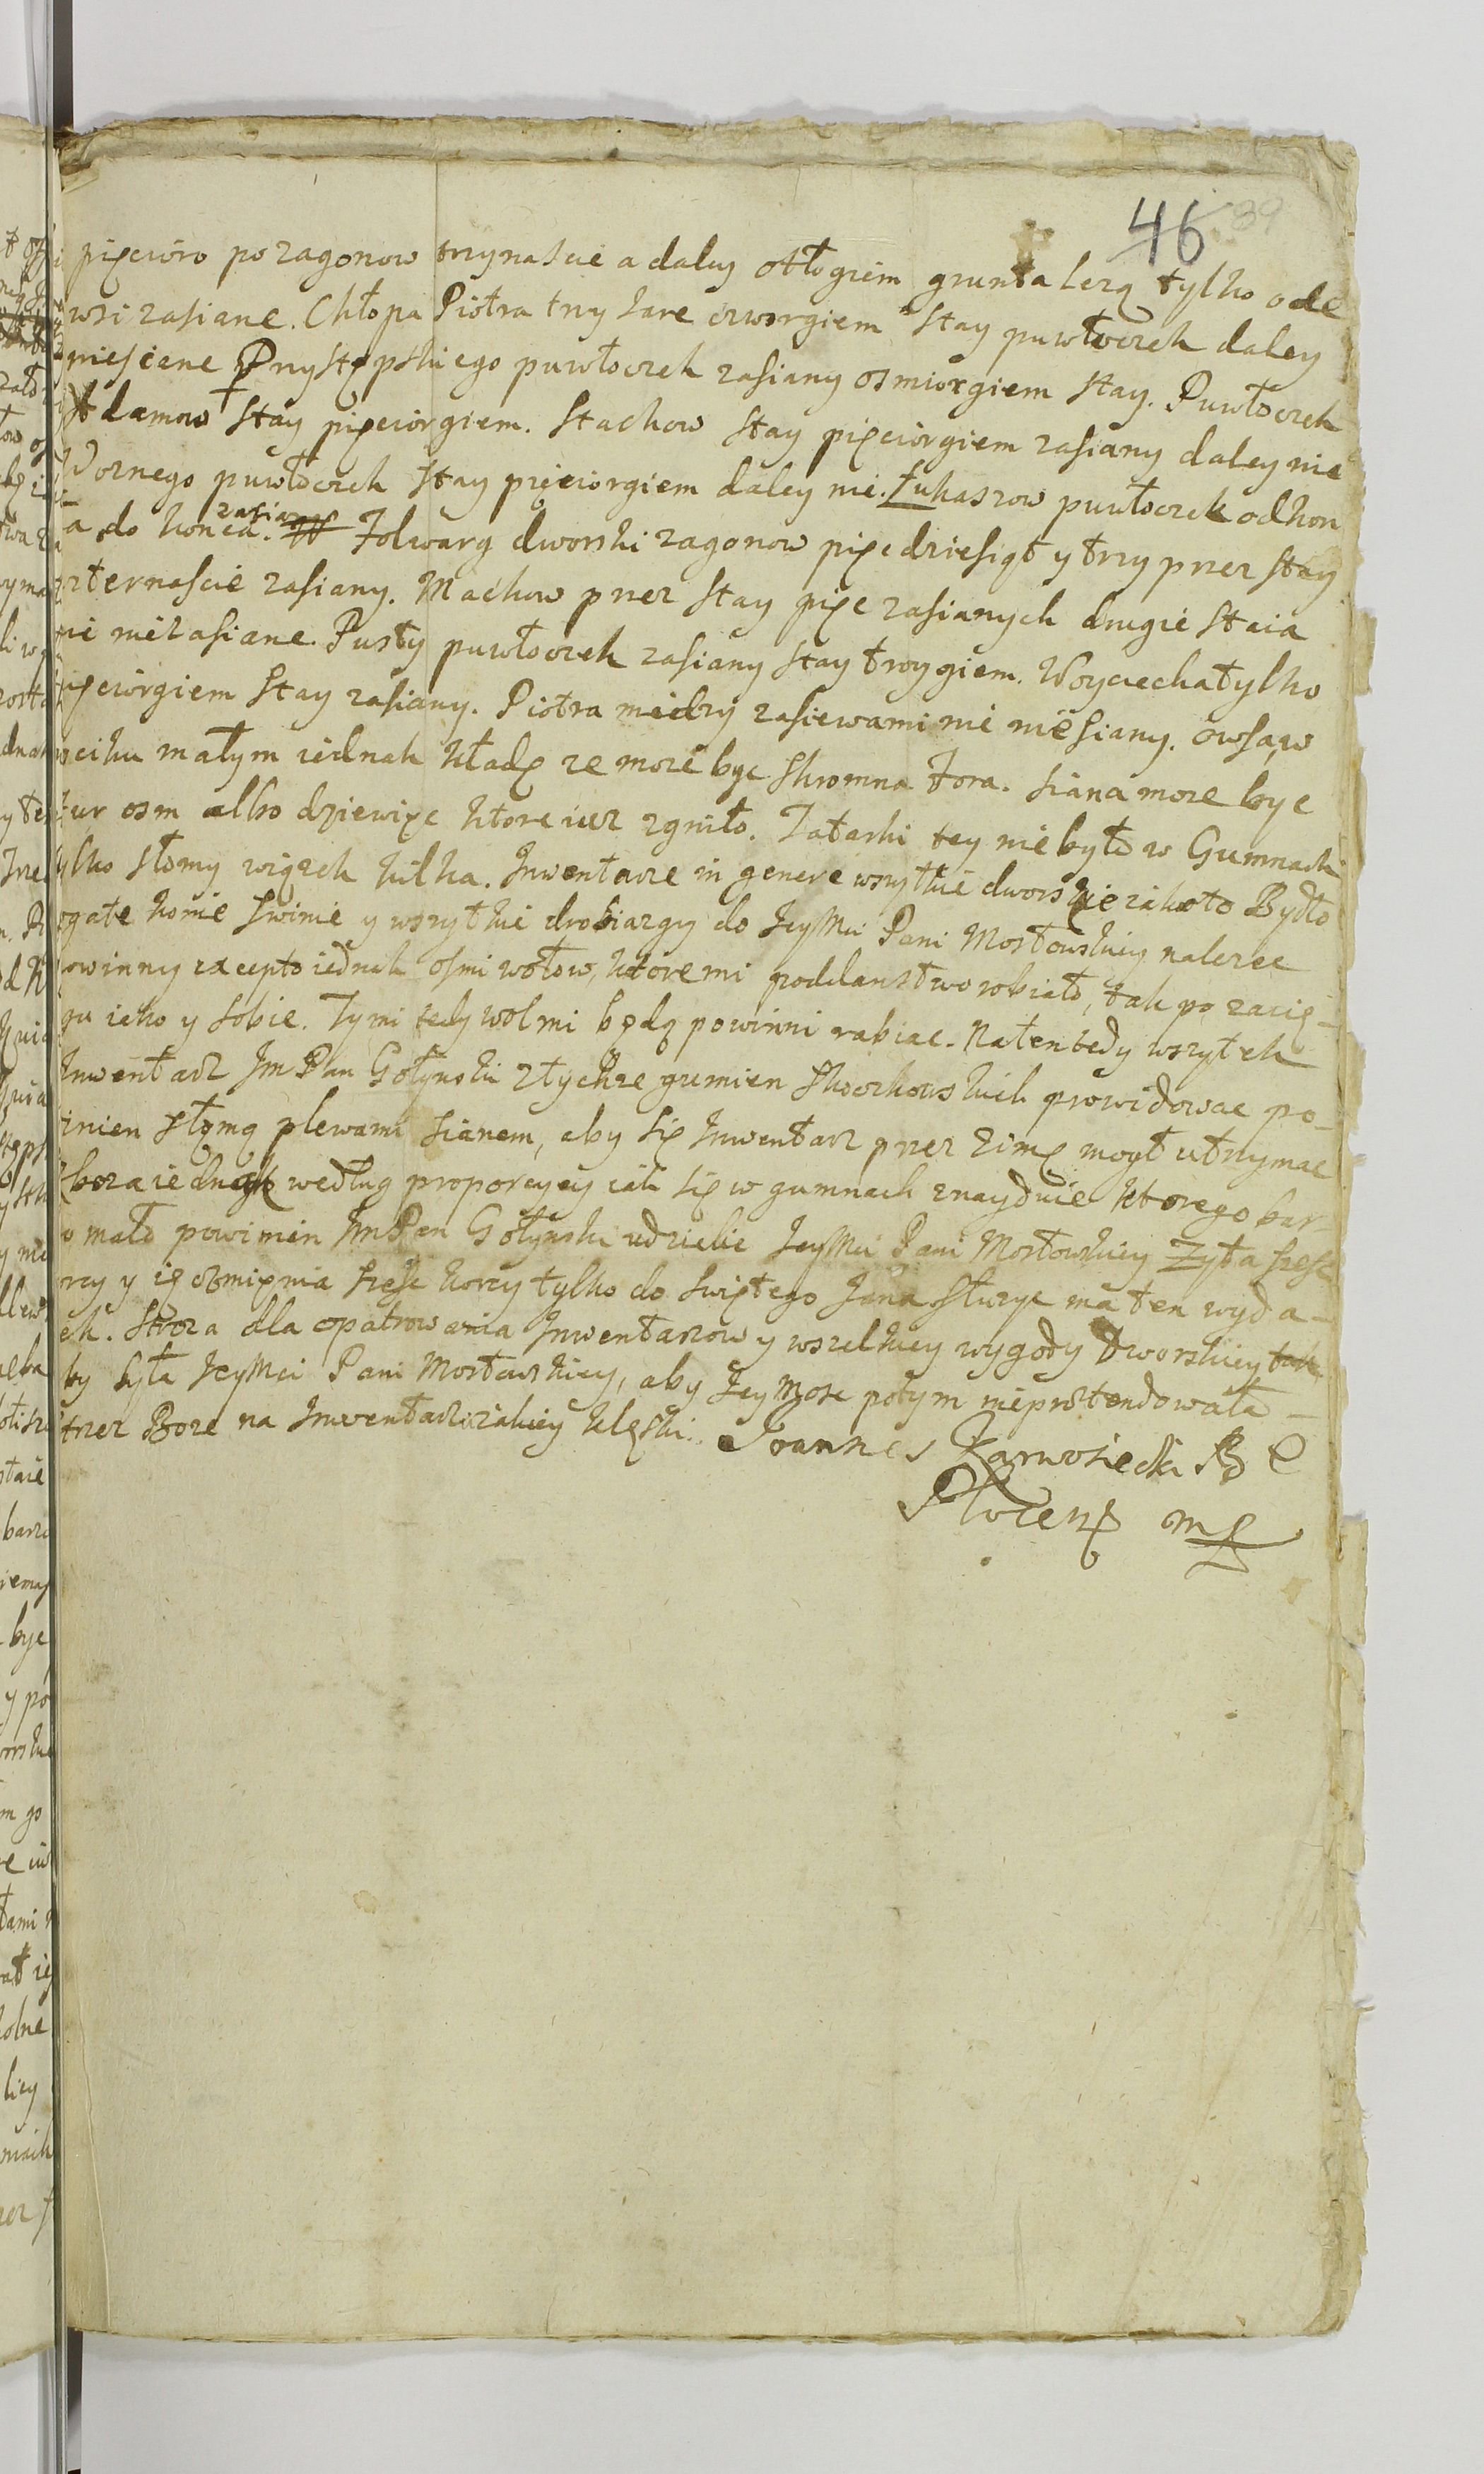 46 39
pięcioro po zagonow trzynascie a daley odłogiem grunta lezą tylko ode
wsi zasiane. Chłopa Piotra trzy sare czworgiem stay puwłoczek daley
niesiane Przystępskiego puwłoczek zasiany osmiorgiem stay. Puwłoczek
Adamow stay pięciorgiem. Stachow stay pięciorgiem zasiany daley nie
Woznego puwłoczek stay pięciorgiem daley nie. Łukaszow puwłoczek od kon
a do konca. zasiany Folwarg dworski zagonow pięcdziesiąt y trzy przez stay
czternascie zasiany. Machow przez stay pięc zasianych drugie staia
nie zasiane. Pusty puwłoczek zasiany stay troygiem. Woyciecha tylko
pięciorgiem stay zasiany. Piotra miedzy zasiewami nie niesiany. owsa, w
ciku małym iednak kładę ze moze byc skromna fora. Siana moze byc
fur osm albo dziewięc ktore iuz zgniło. Tatarki tey nie było w Gumnach
tylko słomy wiązek kilka. Inwentarze in genere wszytkie dworskie iako to Bydło
rogate konie swinie y wszytkie drobiazgy do JeyMci Pani Mostowskiey nalezec
powinny excepto iednak osmi wołow, ktoremi poddanstwo robiało, tak po zacię-
gu iako y sobie. Tymi tedy wolmi będą powinni rabiac. Na ten tedy wszytek
Inwentarz Jm Pan Gołynski z tychze gumien Skoczkowskich prowidowac po-
winien słomą plewami sianem, aby się Inwentarz przez zimę mogł utrzymac
Zboza iednak według proporcyey iak się w gumnach znayduie ktorego bar-
o mało powinien Jm Pan Gołynski udzielic JeyMci Pani Mostowskiey Zyta szesc
rcy y ięczmięnia szesc korcy tylko do Swiętego Jana słuzyc ma ten wyda-
ek. Stroza dla opatrowania Inwentarzow y wszelkiey wygody Dworskiey tak
by była JeyMci Pani Mostowskiey, aby Jeymosc potym nie prætendowała
trzez Boze na Inwentarz iakiey klęski. Joannes Karwosiecki B C
Plocens mp